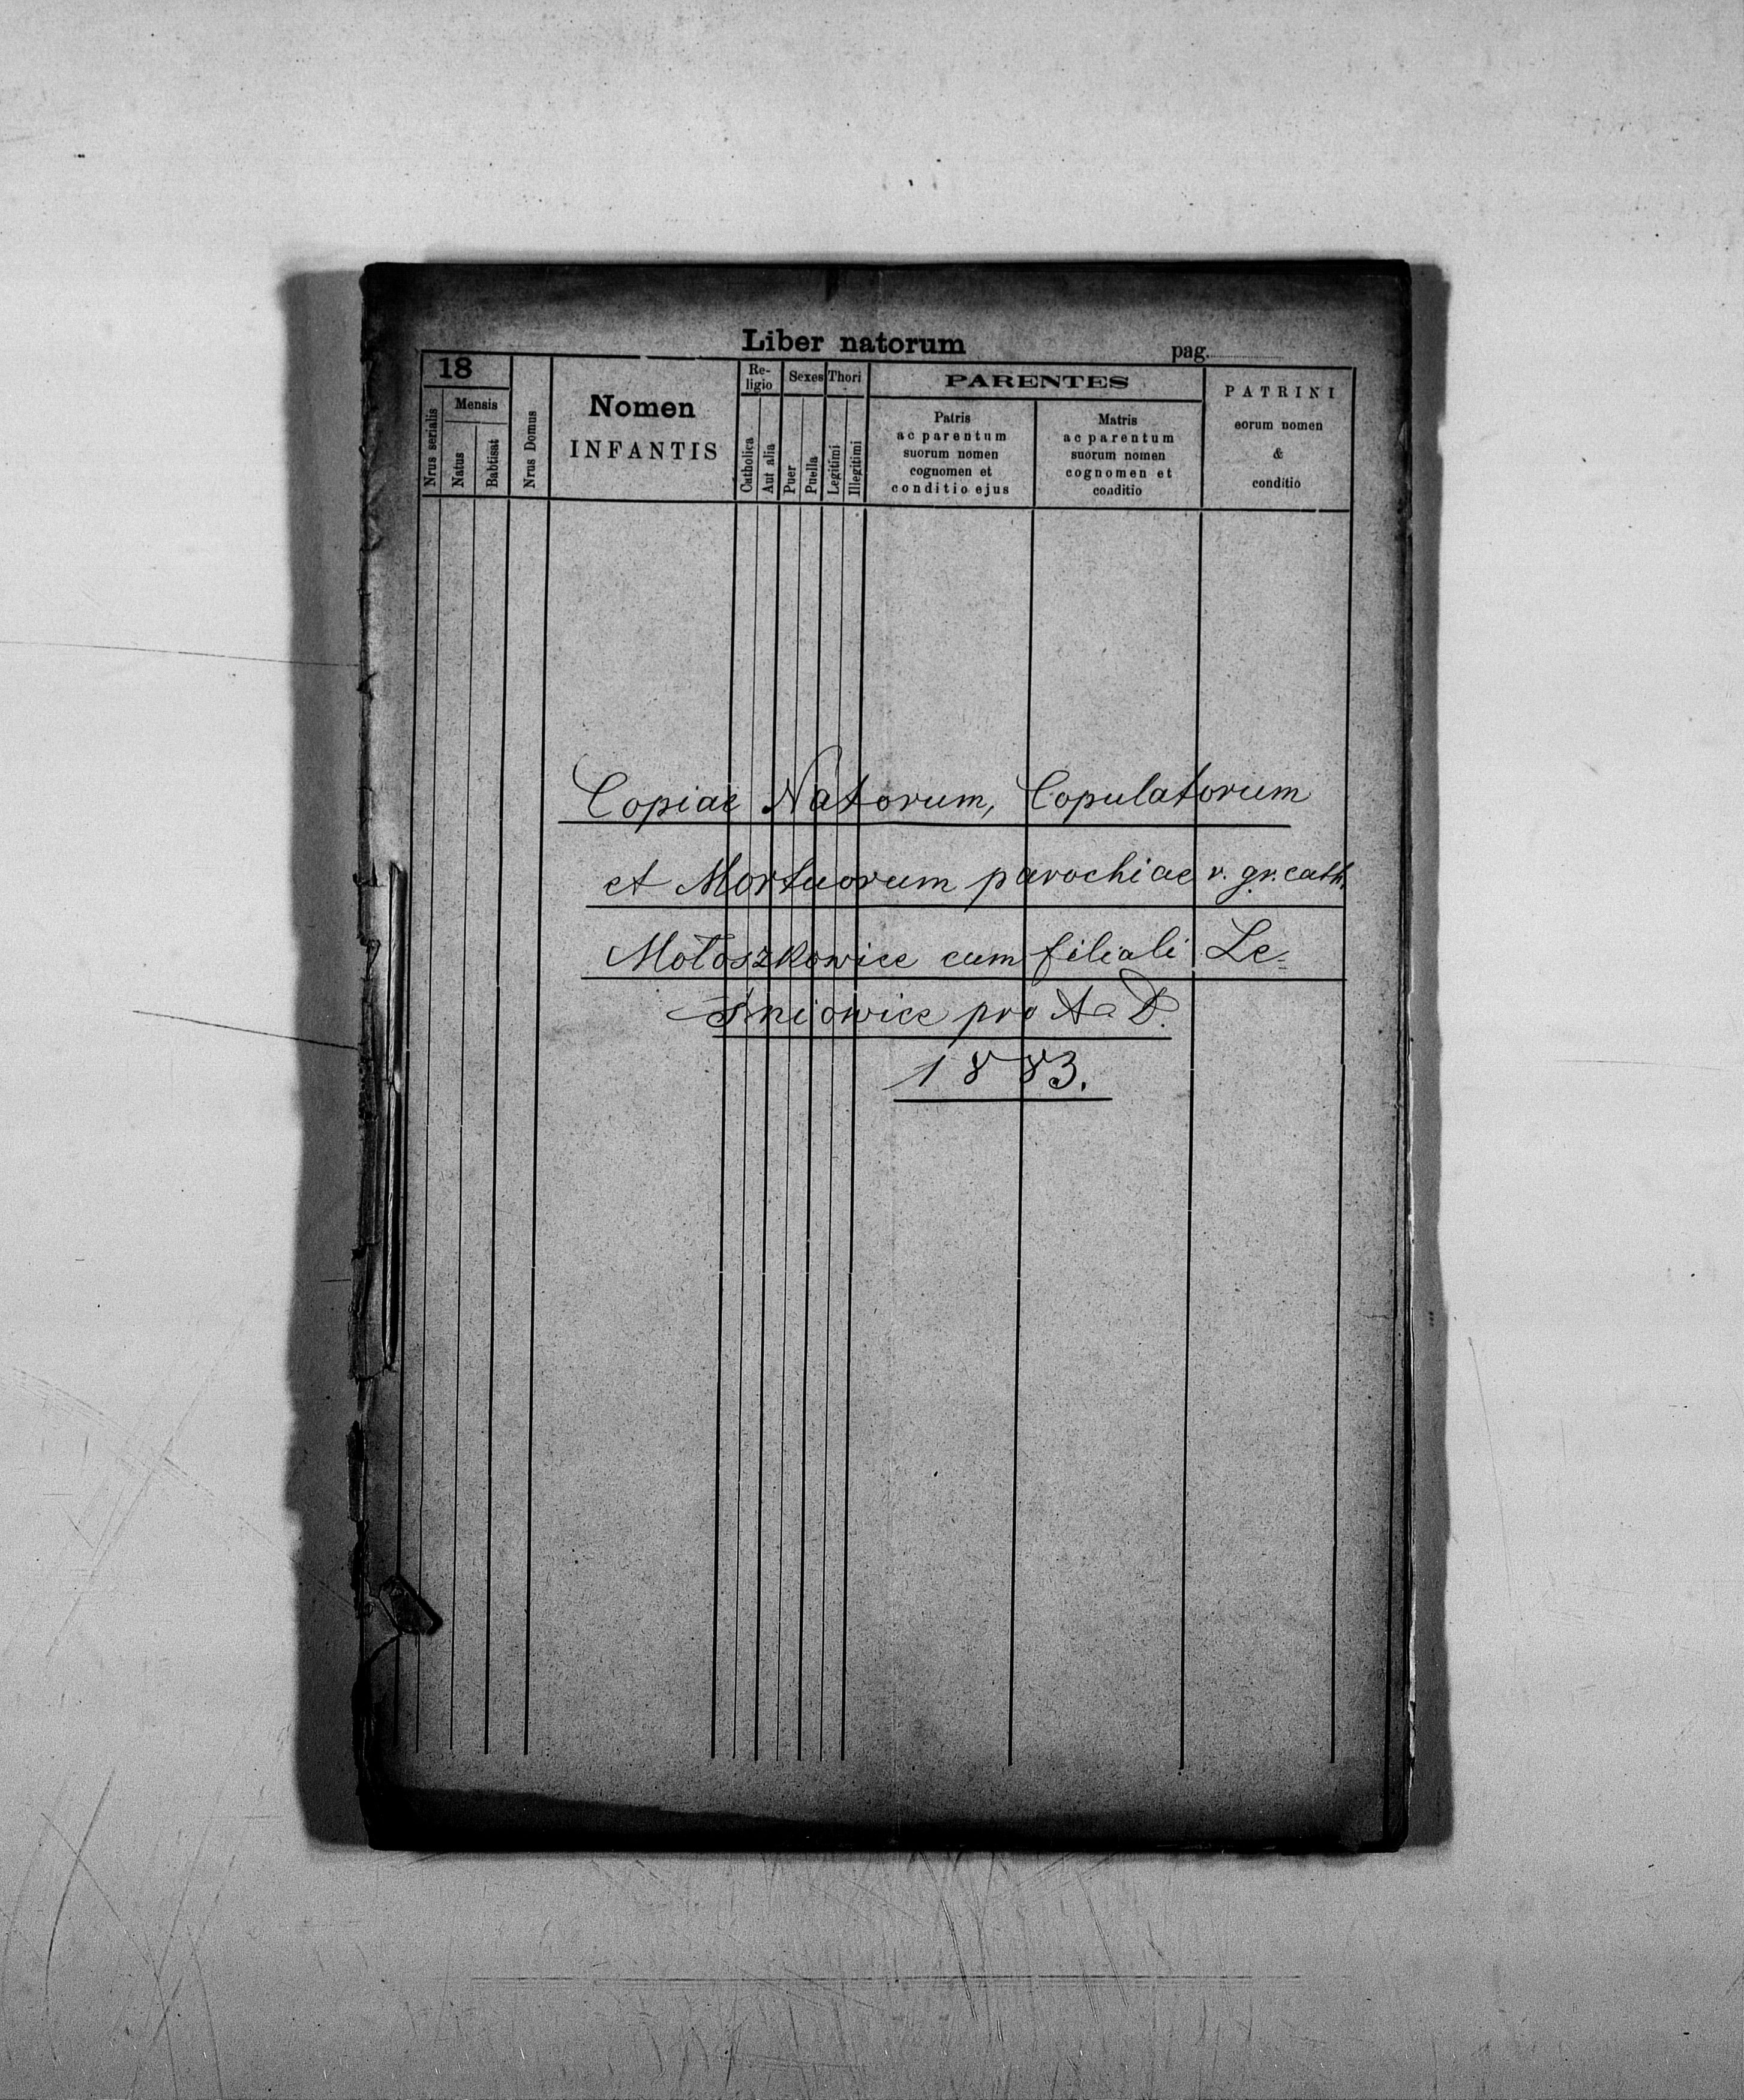 Liber natorum
pag.
18
Nrus serialis
Mensis
Natus
Babtisat
Nrus Domus
Nomen
INFANTIS
Re-
ligio
Catholica
Aut alia
Sexes
Puer
Puella
Thori
Legitimi
Illegitimi
PARENTES
Patris
ac parentum
suorum nomen
cognomen et
conditio ejus
Matris
ac parentum
suorum nomen
cognomen et
conditio
PATRINI
eorum nomen
&
conditio
Copiae Natorum, Copulatorum
et Mortuorum parochiae r. gr. cath.
Mołoszkowice cum filiali Le=
śniowice pro A. D.
1883.